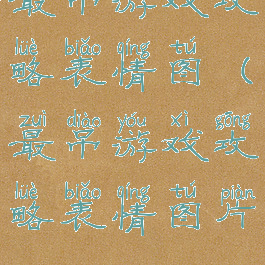 最吊游戏攻
lüè biǎo qíng tú
略表情图(
zuì diào yóu xì gōng
最吊游戏攻
lüè biǎo qíng tú piàn
略表情图片